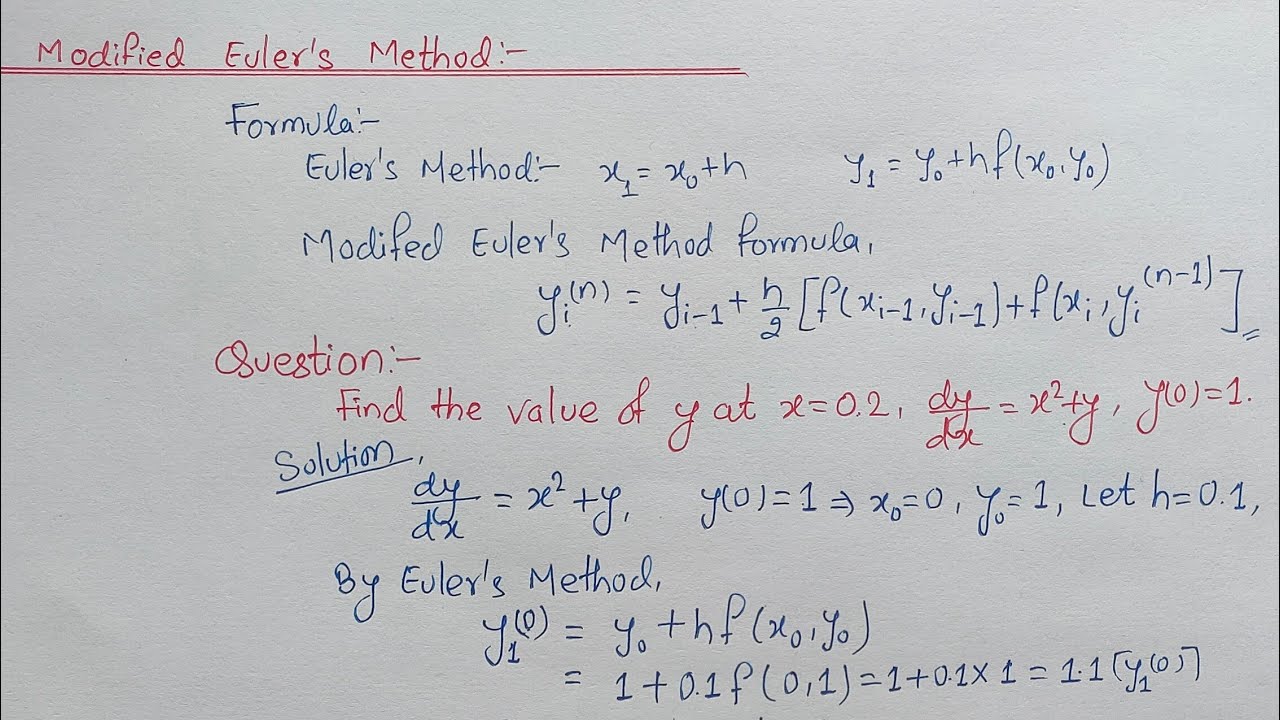 Modified Euler's Method:-
Formula:-
Euler's Method:- x₁ = x₀+h    y₁ = y₀+hf(x₀,y₀)
Modifed Euler's Method formula,
yᵢ⁽ⁿ⁾ = yᵢ₋₁ + h/2 [f(xᵢ₋₁,yᵢ₋₁)+f(xᵢ,yᵢ⁽ⁿ⁻¹⁾]
Question:-
Find the value of y at x=0.2, dy/dx = x²+y, y(0)=1.
Solution,
dy/dx = x²+y,    y(0)=1 ⇒ x₀=0, y₀=1, Let h=0.1,
By Euler's Method,
y₁⁽⁰⁾ = y₀ +hf(x₀,y₀)
= 1+0.1f(0,1)=1+0.1×1 = 1.1 [y₁⁽⁰⁾]